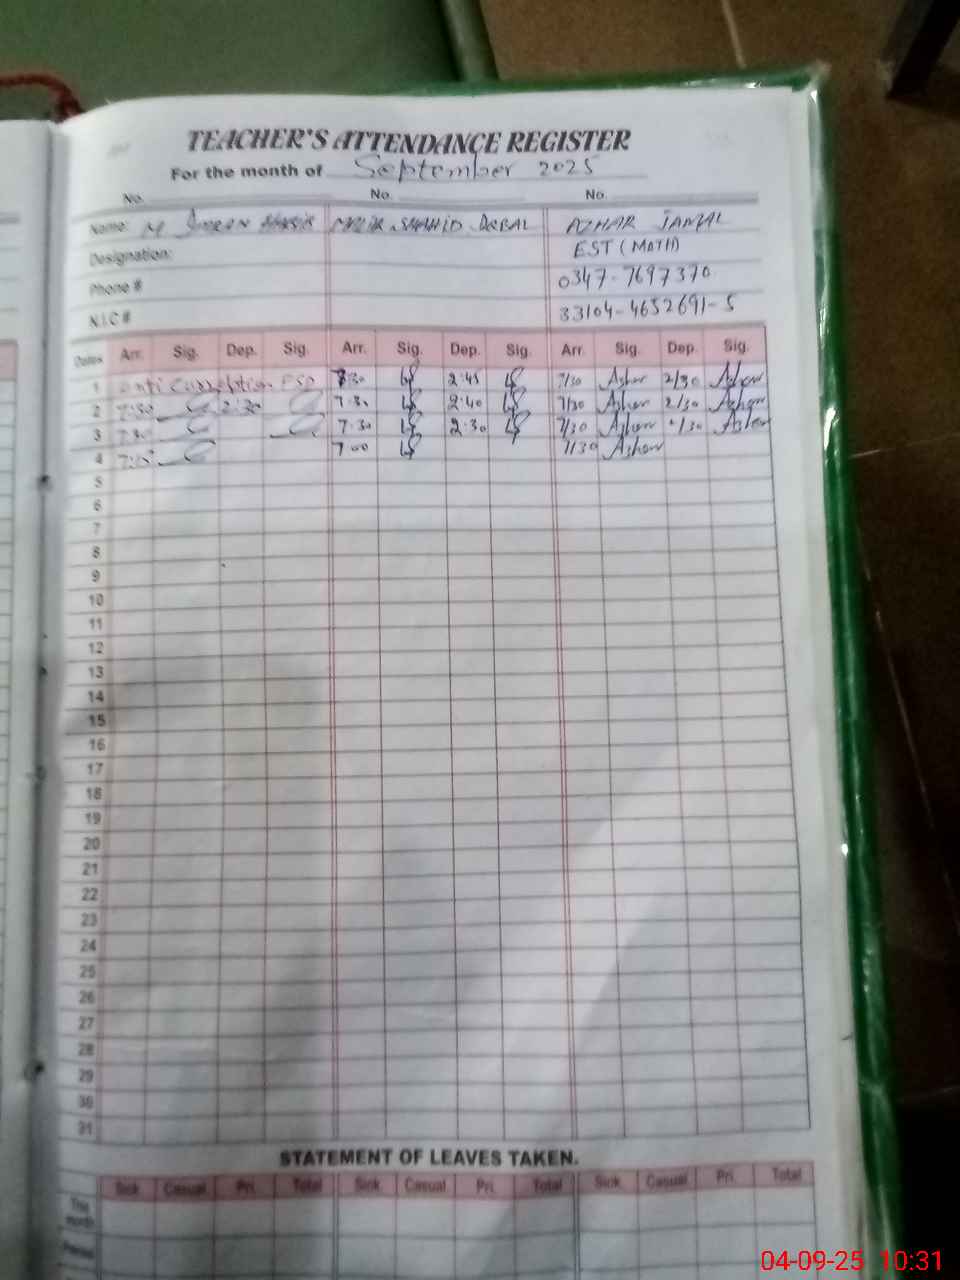 TEACHER'S ATTENDANCE REGISTER
For the month of September 2025
No. No. No.
Name: M SHAHID AZHAR JAMAL
Designation: EST (MATH)
Phone # 0347-7697370
N.I.C # 33104-4652691-5
Dates Arr. Sig. Dep. Sig. Arr. Sig. Dep. Sig. Arr. Sig. Dep. Sig.
1 Anti FSD 2:45 7/30 Azher 2/30 Azher
2 7:30 2:30 7:30 2:40 7/30 Azher 2/30 Azher
3 7:30 7:30 2:30 7/30 Azher Azher
4 7:15 7:00 7/30 Azher
5
6
7
8
9
10
11
12
13
14
15
16
17
18
19
20
21
22
23
24
25
26
27
28
29
30
31
STATEMENT OF LEAVES TAKEN.
Sick Casual Pri. Total Sick Casual Pri. Total Sick Casual Pri. Total
This month
04-09-25 10:31